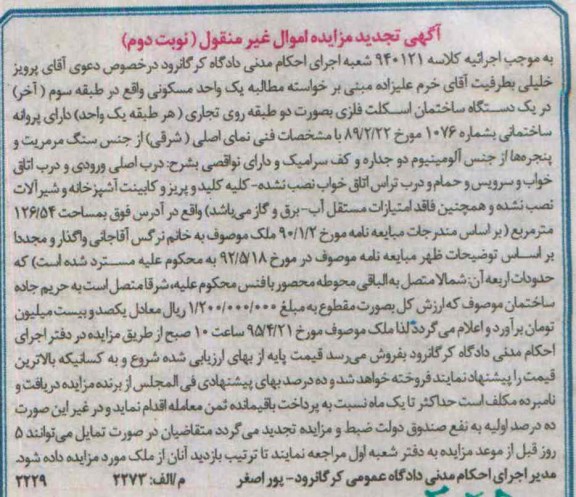 آگهی تجدید مزایده اموال غیر منقول (نوبت دوم)
به موجب اجرائیه کلاسه ۹۴۰۱۲۱ شعبه اجرای احکام مدنی دادگاه کرگانرود درخصوص دعوی آقای پرویز
خلیلی بطرفیت آقای خرم علیزاده مبنی بر خواسته مطالبه یک واحد مسکونی واقع در طبقه سوم (آخر)
در یک دستگاه ساختمان اسکلت فلزی بصورت دو طبقه روی تجاری (هر طبقه یک واحد) دارای پروانه
ساختمانی بشماره ۱۰۷۶ مورخ ۸۹/۲/۲۲ با مشخصات فنی نمای اصلی (شرقی) از جنس سنگ مرمریت و
پنجره‌ها از جنس آلومینیوم دو جداره و کف سرامیک و دارای نواقصی بشرح: درب اصلی ورودی و درب اتاق
خواب و سرویس و حمام و درب تراس اتاق خواب نصب نشده- کلیه کلید و پریز و کابینت آشپزخانه و شیرآلات
نصب نشده و همچنین فاقد امتیازات مستقل آب- برق و گاز می‌باشد) واقع در آدرس فوق بمساحت ۱۲۶/۵۴
مترمربع (بر اساس مندرجات مبایعه نامه مورخ ۹۰/۱/۲ ملک موصوف به خانم نرگس آقاجانی واگذار و مجددا
بر اساس توضیحات ظهر مبایعه نامه موصوف در مورخ ۹۲/۵/۱۸ به محکوم علیه مسترد شده است) که
حدودات اربعه آن: شمالا متصل به الباقی محوطه محصور با فنس محکوم علیه، شرقا متصل است به حریم جاده
ساختمان موصوف که ارزش کل بصورت مقطوع به مبلغ ۱/۲۰۰/۰۰۰/۰۰۰ ریال معادل یکصد و بیست میلیون
تومان برآورد و اعلام می گردد لذا ملک موصوف مورخ ۹۵/۴/۲۱ ساعت ۱۰ صبح از طریق مزایده در دفتر اجرای
احکام مدنی دادگاه کرگانرود بفروش می‌رسد قیمت پایه از بهای ارزیابی شده شروع و به کسانیکه بالاترین
قیمت را پیشنهاد نمایند فروخته خواهد شد و ده درصد بهای پیشنهادی فی المجلس از برنده مزایده دریافت و
نامبرده مکلف است حداکثر تا یک ماه نسبت به پرداخت باقیمانده ثمن معامله اقدام نماید و در غیر این صورت
ده درصد اولیه به نفع صندوق دولت ضبط و مزایده تجدید می گردد متقاضیان در صورت تمایل می‌توانند ۵
روز قبل از موعد مزایده به دفتر شعبه اول مراجعه نمایند تا ترتیب بازدید آنان از ملک مورد مزایده داده شود.
مدیر اجرای احکام مدنی دادگاه عمومی کرگانرود- پور اصغر م/الف: ۲۲۷۳ ۲۲۲۹